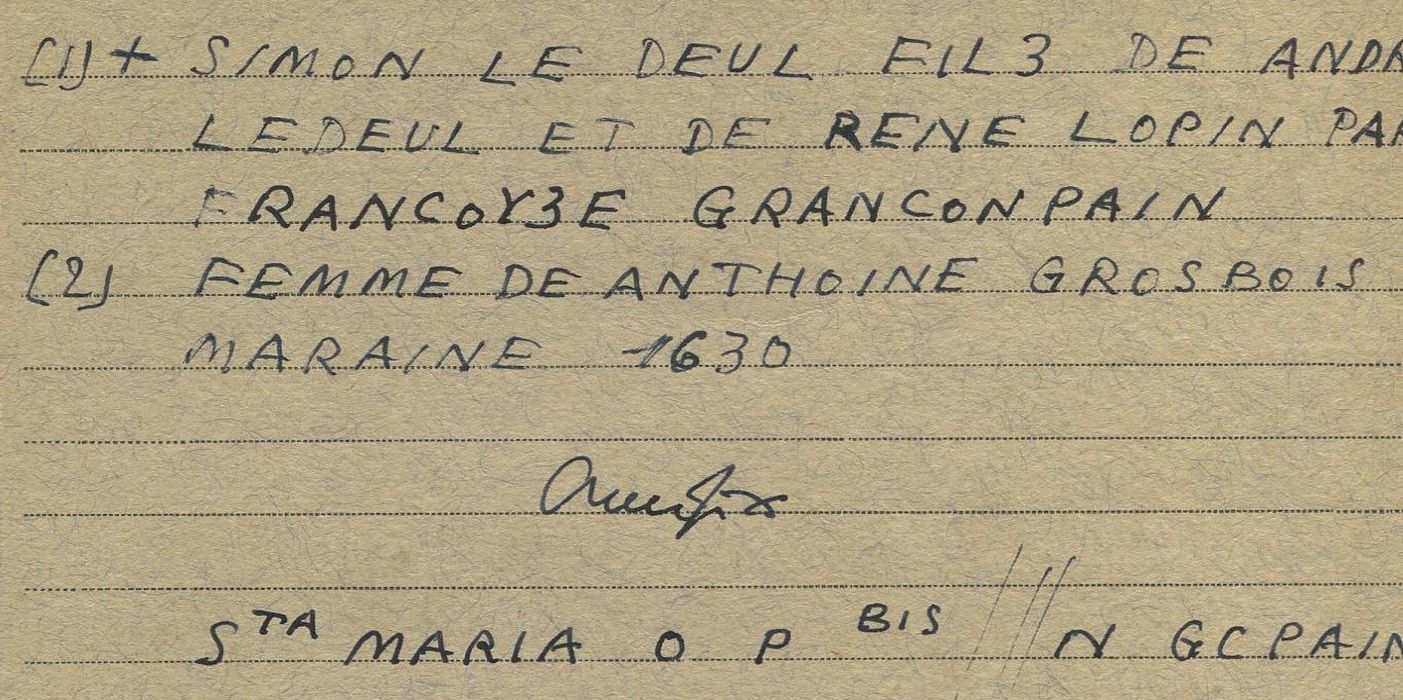 (1) + SIMON LE DEUL FIL3 DE ANDR
LEDEUL ET DE RENE LOPIN PAR
FRANCOY3E GRANCONPAIN
(2) FEMME DE ANTHOINE GROSBOIS
MARAINE 1630
STA MARIA O P BIS /// N GCPAIN